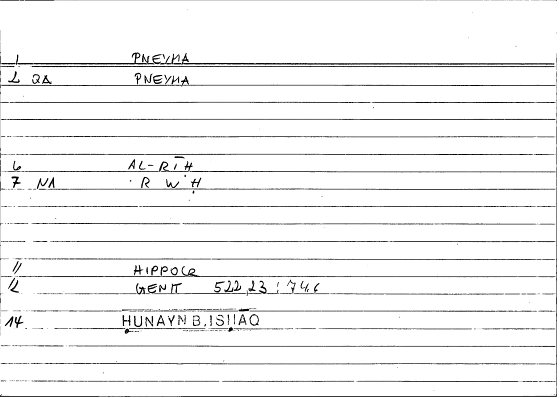 1 PNEYMA
2 QA PNEYMA
6 AL-RĪḤ
7 NA R W Ḥ
11 HIPPOCR
12 GENIT 522,23 : 74.6
14 ḤUNAYN B. ISḤĀQ